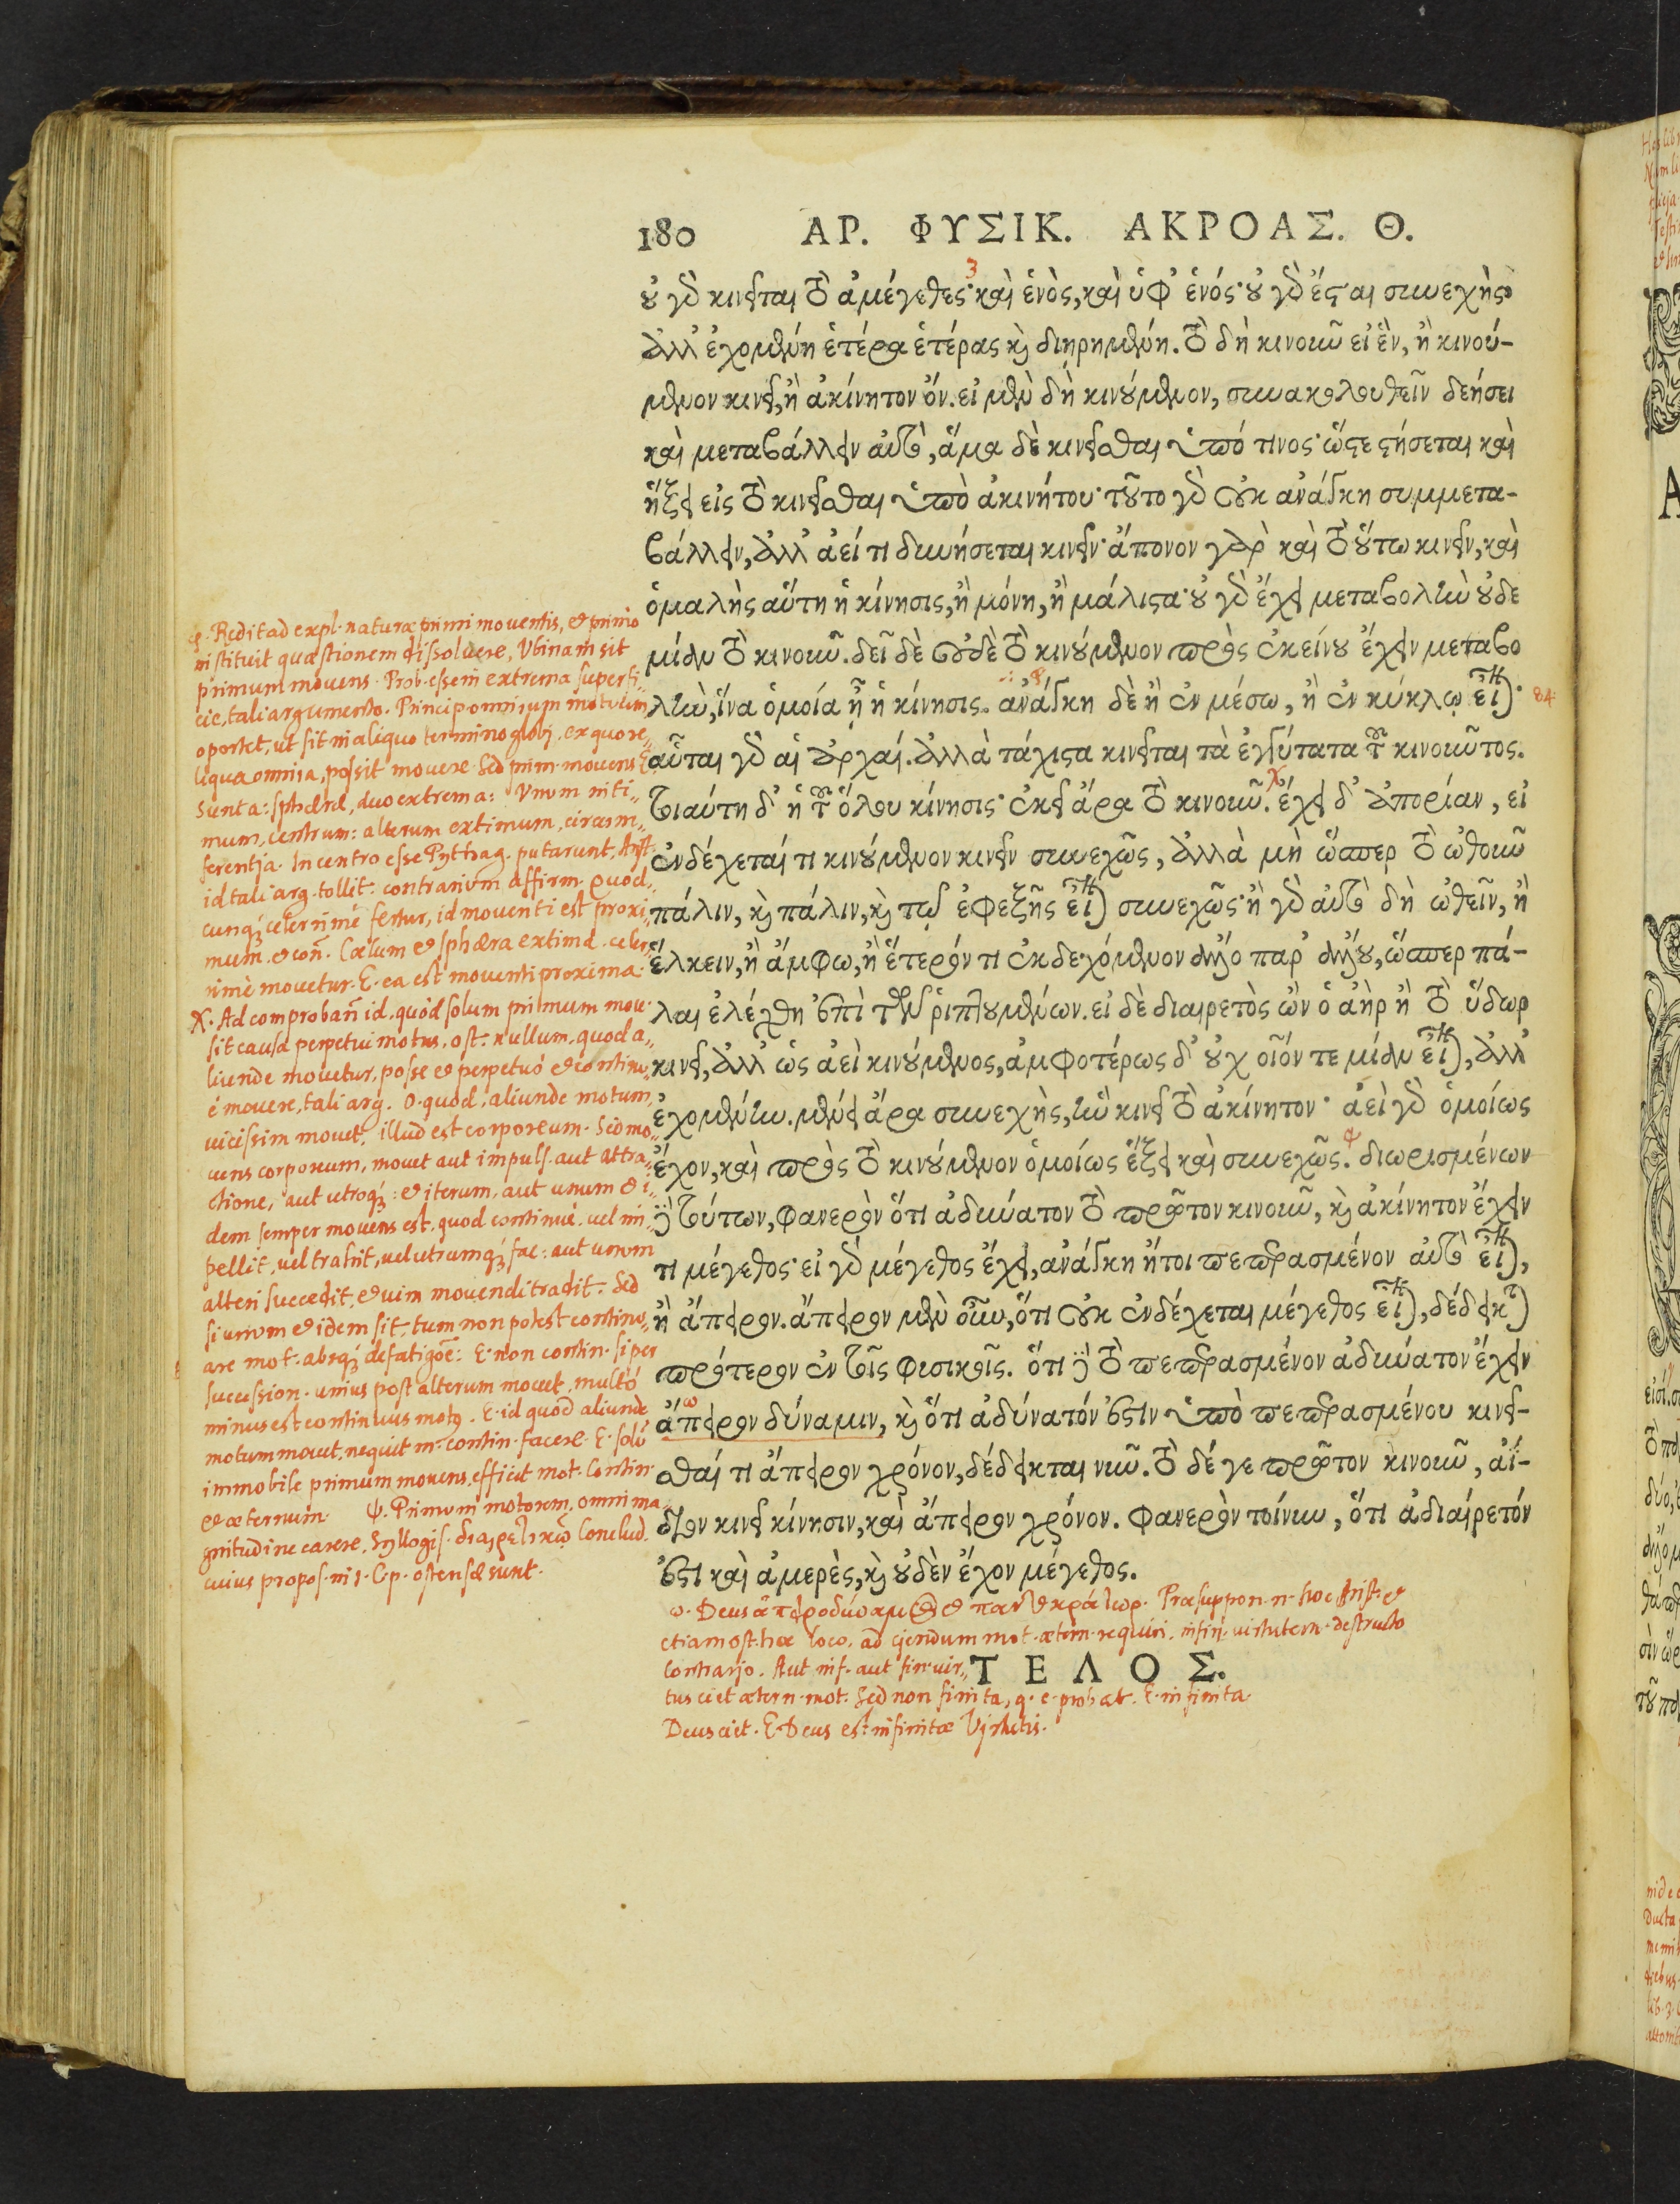 180 ΑΡ. ΦΥΣΙΚ. ΑΚΡΟΑΣ. Θ.
οὐ γὰρ κινεῖται τὸ ἀμέγεθες· καὶ ἑνὸς, καὶ ὑφ' ἑνός· οὐ γὰρ ἔσται συνεχὴς
ἀλλ' ἐχομένη ἑτέρα ἑτέρας καὶ διῃρημένη. τὸ δὴ κινοῦν εἰ ἓν, ἢ κινού-
μενον κινεῖ, ἢ ἀκίνητον ὄν. εἰ μὲν δὴ κινούμενον, συνακολουθεῖν δεήσει
καὶ μεταβάλλειν αὐτὸ, ἅμα δὲ κινεῖσθαι ὑπό τινος· ὥστε στήσεται καὶ
ἥξει εἰς τὸ κινεῖσθαι ὑπὸ ἀκινήτου· τοῦτο γὰρ οὐκ ἀνάγκη συμμετα-
βάλλειν, ἀλλ' ἀεί τι δυνήσεται κινεῖν· ἄπονον γὰρ καὶ τὸ οὕτω κινεῖν, καὶ
ὁμαλὴς αὕτη ἡ κίνησις, ἢ μόνη, ἢ μάλιστα· οὐ γὰρ ἔχει μεταβολὴν οὐδε
μίαν τὸ κινοῦν. δεῖ δὲ οὐδὲ τὸ κινούμενον πρὸς ἐκείνου ἔχειν μεταβο
λὴν, ἵνα ὁμοία ᾖ ἡ κίνησις. ἀνάγκη δὲ ἢ ἐν μέσω, ἢ ἐν κύκλῳ εἶναι· 84
αὗται γὰρ αἱ ἀρχαί. ἀλλὰ τάχιστα κινεῖται τὰ ἐγγύτατα τοῦ κινοῦντος.
τοιαύτη δ' ἡ τοῦ ὅλου κίνησις· ἐκεῖ ἄρα τὸ κινοῦν. ἔχει δ' ἀπορίαν, εἰ
ἐνδέχεταί τι κινούμενον κινεῖν συνεχῶς, ἀλλὰ μὴ ὥσπερ τὸ ὠθοῦν
πάλιν, καὶ πάλιν, καὶ τῷ ἐφεξῆς εἶναι συνεχῶς· ἢ γὰρ αὐτὸ δὴ ὠθεῖν, ἢ
ἕλκειν, ἢ ἄμφω, ἢ ἕτερόν τι ἐκδεχόμενον ἄλλο παρ' ἄλλου, ὥσπερ πά-
λαι ἐλέχθη ἐπὶ τῶν ῥιπτουμένων. εἰ δὲ διαιρετὸς ὢν ὁ ἀὴρ ἢ τὸ ὕδωρ
κινεῖ, ἀλλ' ὡς ἀεὶ κινούμενος, ἀμφοτέρως δ' οὐχ οἷόν τε μίαν εἶναι, ἀλλ'
ἐχομένην. μένει ἄρα συνεχὴς, ἣν κινεῖ τὸ ἀκίνητον· ἀεὶ γὰρ ὁμοίως
ἔχον, καὶ πρὸς τὸ κινούμενον ὁμοίως ἕξει καὶ συνεχῶς. διωρισμένων
δὲ τούτων, φανερὸν ὅτι ἀδύνατον τὸ πρῶτον κινοῦν, καὶ ἀκίνητον ἔχειν
τι μέγεθος· εἰ γὰρ μέγεθος ἔχει, ἀνάγκη ἤτοι πεπερασμένον αὐτὸ εἶναι,
ἢ ἄπειρον. ἄπειρον μὲν οὖν, ὅτι οὐκ ἐνδέχεται μέγεθος εἶναι, δέδεικται
πρότερον ἐν τοῖς φυσικοῖς. ὅτι δὲ τὸ πεπερασμένον ἀδύνατον ἔχειν
ἄπειρον δύναμιν, καὶ ὅτι ἀδύνατόν ἐστιν ὑπὸ πεπερασμένου κινεῖ-
σθαί τι ἄπειρον χρόνον, δέδεικται νῦν. τὸ δέ γε πρῶτον κινοῦν, ἀΐ-
διον κινεῖ κίνησιν, καὶ ἄπειρον χρόνον. φανερὸν τοίνυν, ὅτι ἀδιαίρετόν
ἐστι καὶ ἀμερὲς, καὶ οὐδὲν ἔχον μέγεθος.
ΤΕΛΟΣ.
φ. Redit ad expl. naturæ primi moventis, et primo
instituit quæstionem dissolvere, Vbinam sit
primum movens. Prob. esse in extrema superfi-
cie, tali argumento. Princip. omnium motuum
oportet, ut sit in aliquo termino globi, ex quo re-
liqua omnia, possit movere. Sed prim. movens
Sunt a: sphæræ, duo extrema: Vnum inti-
mum, centrum: alterum extimum, circum-
ferentia. In centro esse Pythag. putarunt, Arist.
id tali arg. tollit: contrarium affirm. Quod-
cunq; celerrimè fertur, id moventi est proxi-
mum. et con. Cœlum et sphæra extima celer-
rimè movetur. E. ea est moventi proxima.
χ. Ad comproban id, quòd solum primum mov.
sit causa perpetui motus, ost. nullum, quod a-
liunde movetur, posse et perpetuò et continu-
è movere, tali arg. O. quod, aliunde motum,
vicissim movet, illud est corporeum. Sed mo-
vens corporeum, movet aut impuls. aut attra-
ctione, aut utroq;: et iterum, aut unum et i-
dem semper movens est, quod continuè vel im-
pellit, vel trahit, vel utrumq; fac: aut unum
alteri succedit, et vim movendi tradit. Sed
si unum et idem sit, tum non potest continu-
are mot. absq; defatigoē: E. non contin. si per
succession. unius post alterum movet, multò
minus est continuus mot9. E. id quod aliunde
motum movet, nequit m. contin. facere. E. solū
immobile primum movens, efficit mot. Contin.
et æternum. ψ. Primum motorem, omni ma-
gnitudine carere, Syllogis. διαιρετικῶ Conclud.
cuius propos. in 1. C. p. ostensæ sunt.
ω. Deus ἀπειροδύναμος et παντοκράτωρ. Præsuppon. n. hoc Arist. et
etiam ost. hoc loco, ad ciendum mot. ætern. requiri infin. virtutem. destructo
Contrario. Aut inf. aut fin. vir-
tus ciet ætern. mot. Sed non finita, q. e. probat. E. infinita.
Deus ciet. E. Deus est infinitæ Virtutis.